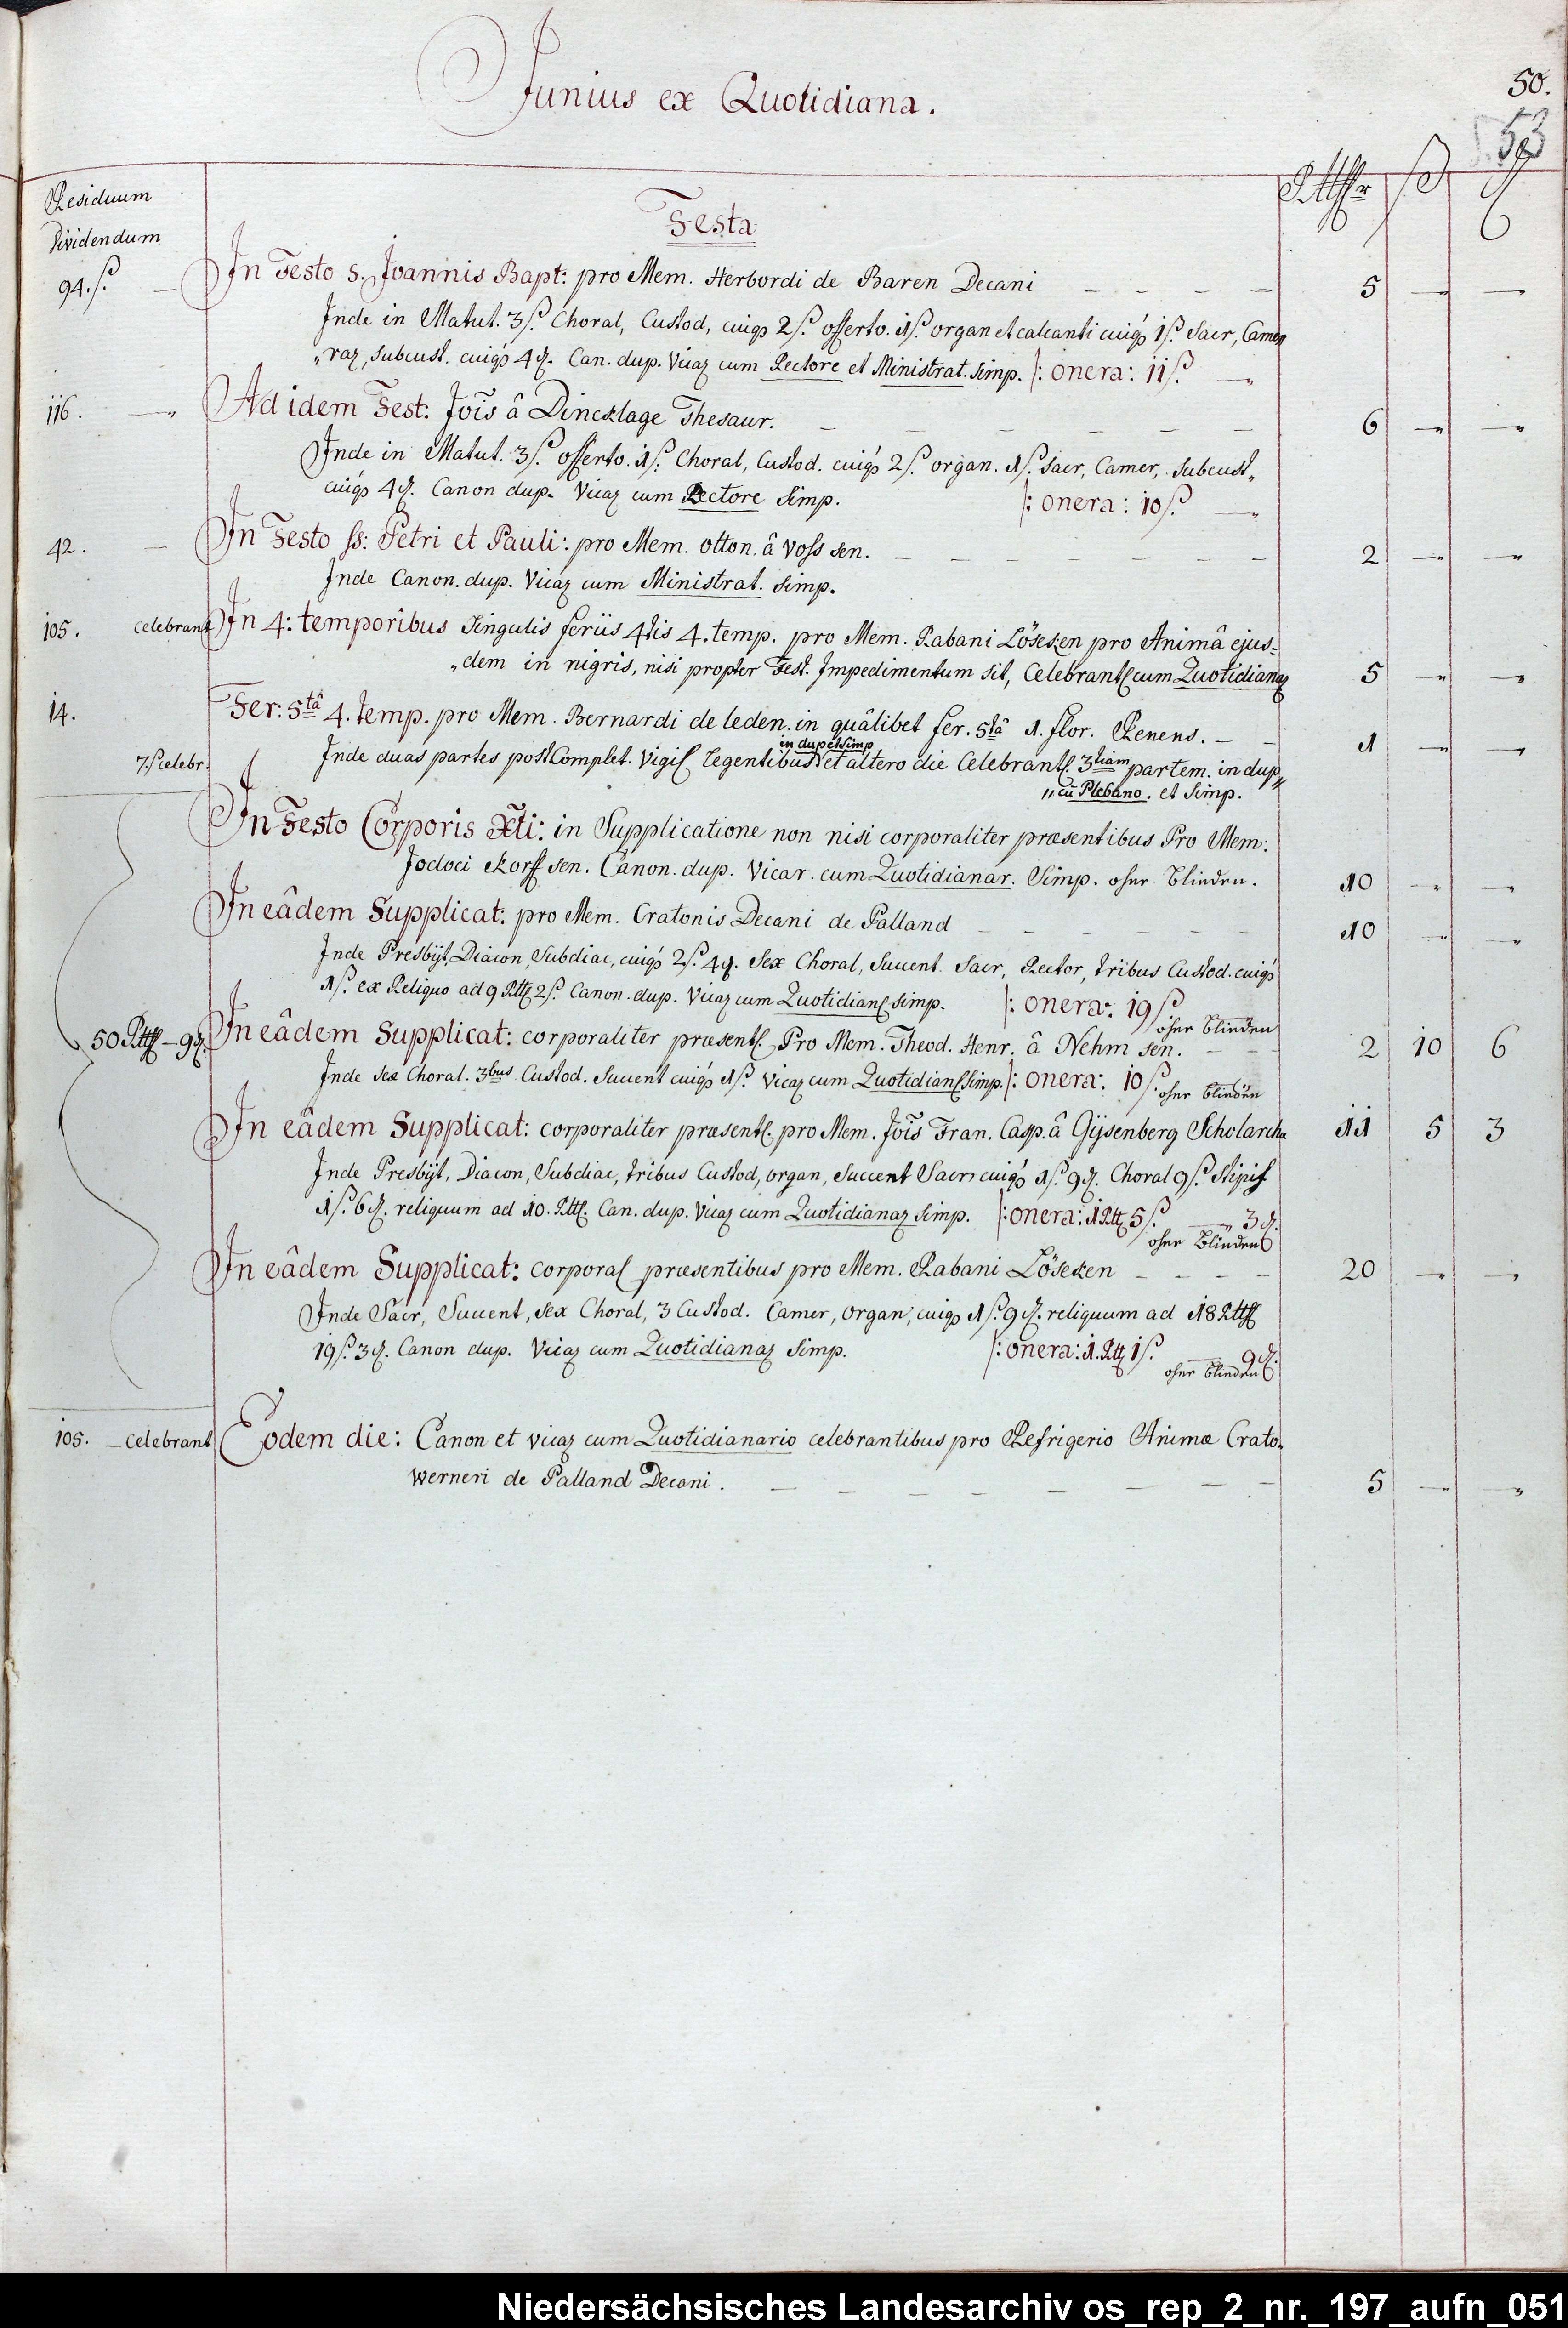 Junius ex Quotidiana.
50.
53
Residuum
dividendum
Rthlr ß ₰
Festa
94. ß. — In Festo S. Joannis Bapt: pro Mem. Herbordi de Baren Decani — — — — 5 — —
Inde in Matut. 3 ß. Choral, Custod, cuiqs 2 ß. offerto. 1 ß. organ et calcanti cuiqs 1 ß. Sacr, Came„
„raz, subcust. cuiqs 4 ₰. Can. dup. Vicaz cum Rectore et Ministrat. simp. /: onera: 11 ß. —
116. — Ad idem Fest: Jois â Dincklage Thesaur. — — — — — — 6 — —
Inde in Matut. 3 ß. offerto. 1 ß. Choral, Custod. cuiqs 2 ß. organ. 1 ß. Sacr, Camer, Subcust„
cuiqs 4 ₰. Canon dup. Vicaz cum Rectore Simp. /: onera: 10 ß. —
42. — In Festo ss: Petri et Pauli: pro Mem. Otton. â Voss sen. — — — — — — 2 — —
Inde Canon. dup. Vicaz cum Ministrat. Simp.
105. celebrant In 4: temporibus Singulis feriis 4tis 4. temp. pro Mem. Rabani Löseken pro Animâ ejus=
„dem in nigris, nisi propter Fest. Impedimentum sit, Celebrant cum Quotidianaz 5 — —
14. Fer: 5tâ 4. temp. pro Mem. Bernardi de leden. in quâlibet fer. 5tâ 1. flor. Renens. — — 1 — —
in dup et Simp
7. ß celebr. Inde duas partes post Complet. Vigil legentibus et altero die Celebrant. 3tiam partem. in dup„
„cũ Plebano. et Simp.
In Festo Corporis Xti: in Supplicatione non nisi corporaliter præsentibus Pro Mem:
Jodoci Korff sen. Canon. dup. Vicar. cum Quotidianar. Simp. ohne blinden. 10 — —
In eâdem Supplicat: pro Mem. Cratonis Decani de Palland — — — — — 10 — —
Inde Presbyt, Diacon, Subdiac, cuiqs 2 ß. 4 ₰. Sex Choral, Succent. Sacr, Rector, tribus Custod. cuiqs
1 ß. ex Reliquo ad 9 Rtl 2 ß. Canon. dup. Vicaz cum Quotidian simp. /: onera: 19 ß
ohne blinden
50 Rtl — 9 ₰. In eâdem Supplicat: corporaliter præsent. Pro Mem. Theod. Henr. â Nehm sen. — — 2 10 6
Inde sex Choral. 3bus Custod. Succent cuiqs 1 ß. Vicaz cum Quotidian Simp. /: onera: 10 ß. ohne blinden
In eâdem Supplicat: corporaliter præsent. pro Mem. Jois Fran. Casp. â Gysenberg Scholarcha 11 5 3
Inde Presbyt, Diacon, Subdiac, tribus Custod, organ, Succent Sacr, cuiqs 1 ß. 9 ₰. Choral 9 ß.
1 ß. 6 ₰. reliquum ad 10. Rtl. Can. dup. Vicaz cum Quotidianaz simp. /: onera: 1 Rtl 5 ß. — 3 ₰.
ohne blinden
In eâdem Supplicat: corporal præsentibus pro Mem. Rabani Löseken — — — — 20 — —
Inde Sacr, Succent, sex Choral, 3 Custod. Camer, organ, cuiqs 1 ß. 9 ₰. reliquum ad 18 Rtl
19 ß. 3 ₰. Canon dup. Vicaz cum Quotidianaz Simp. /: onera: 1. Rtl 1 ß. — 9 ₰.
ohne blinden
105. — celebrant Eodem die: Canon et vicaz cum Quotidianario celebrantibus pro Refrigerio Animæ Crato„
Werneri de Palland Decani. — — — — — — — 5 — —
Niedersächsisches Landesarchiv os_rep_2_nr._197_aufn_051